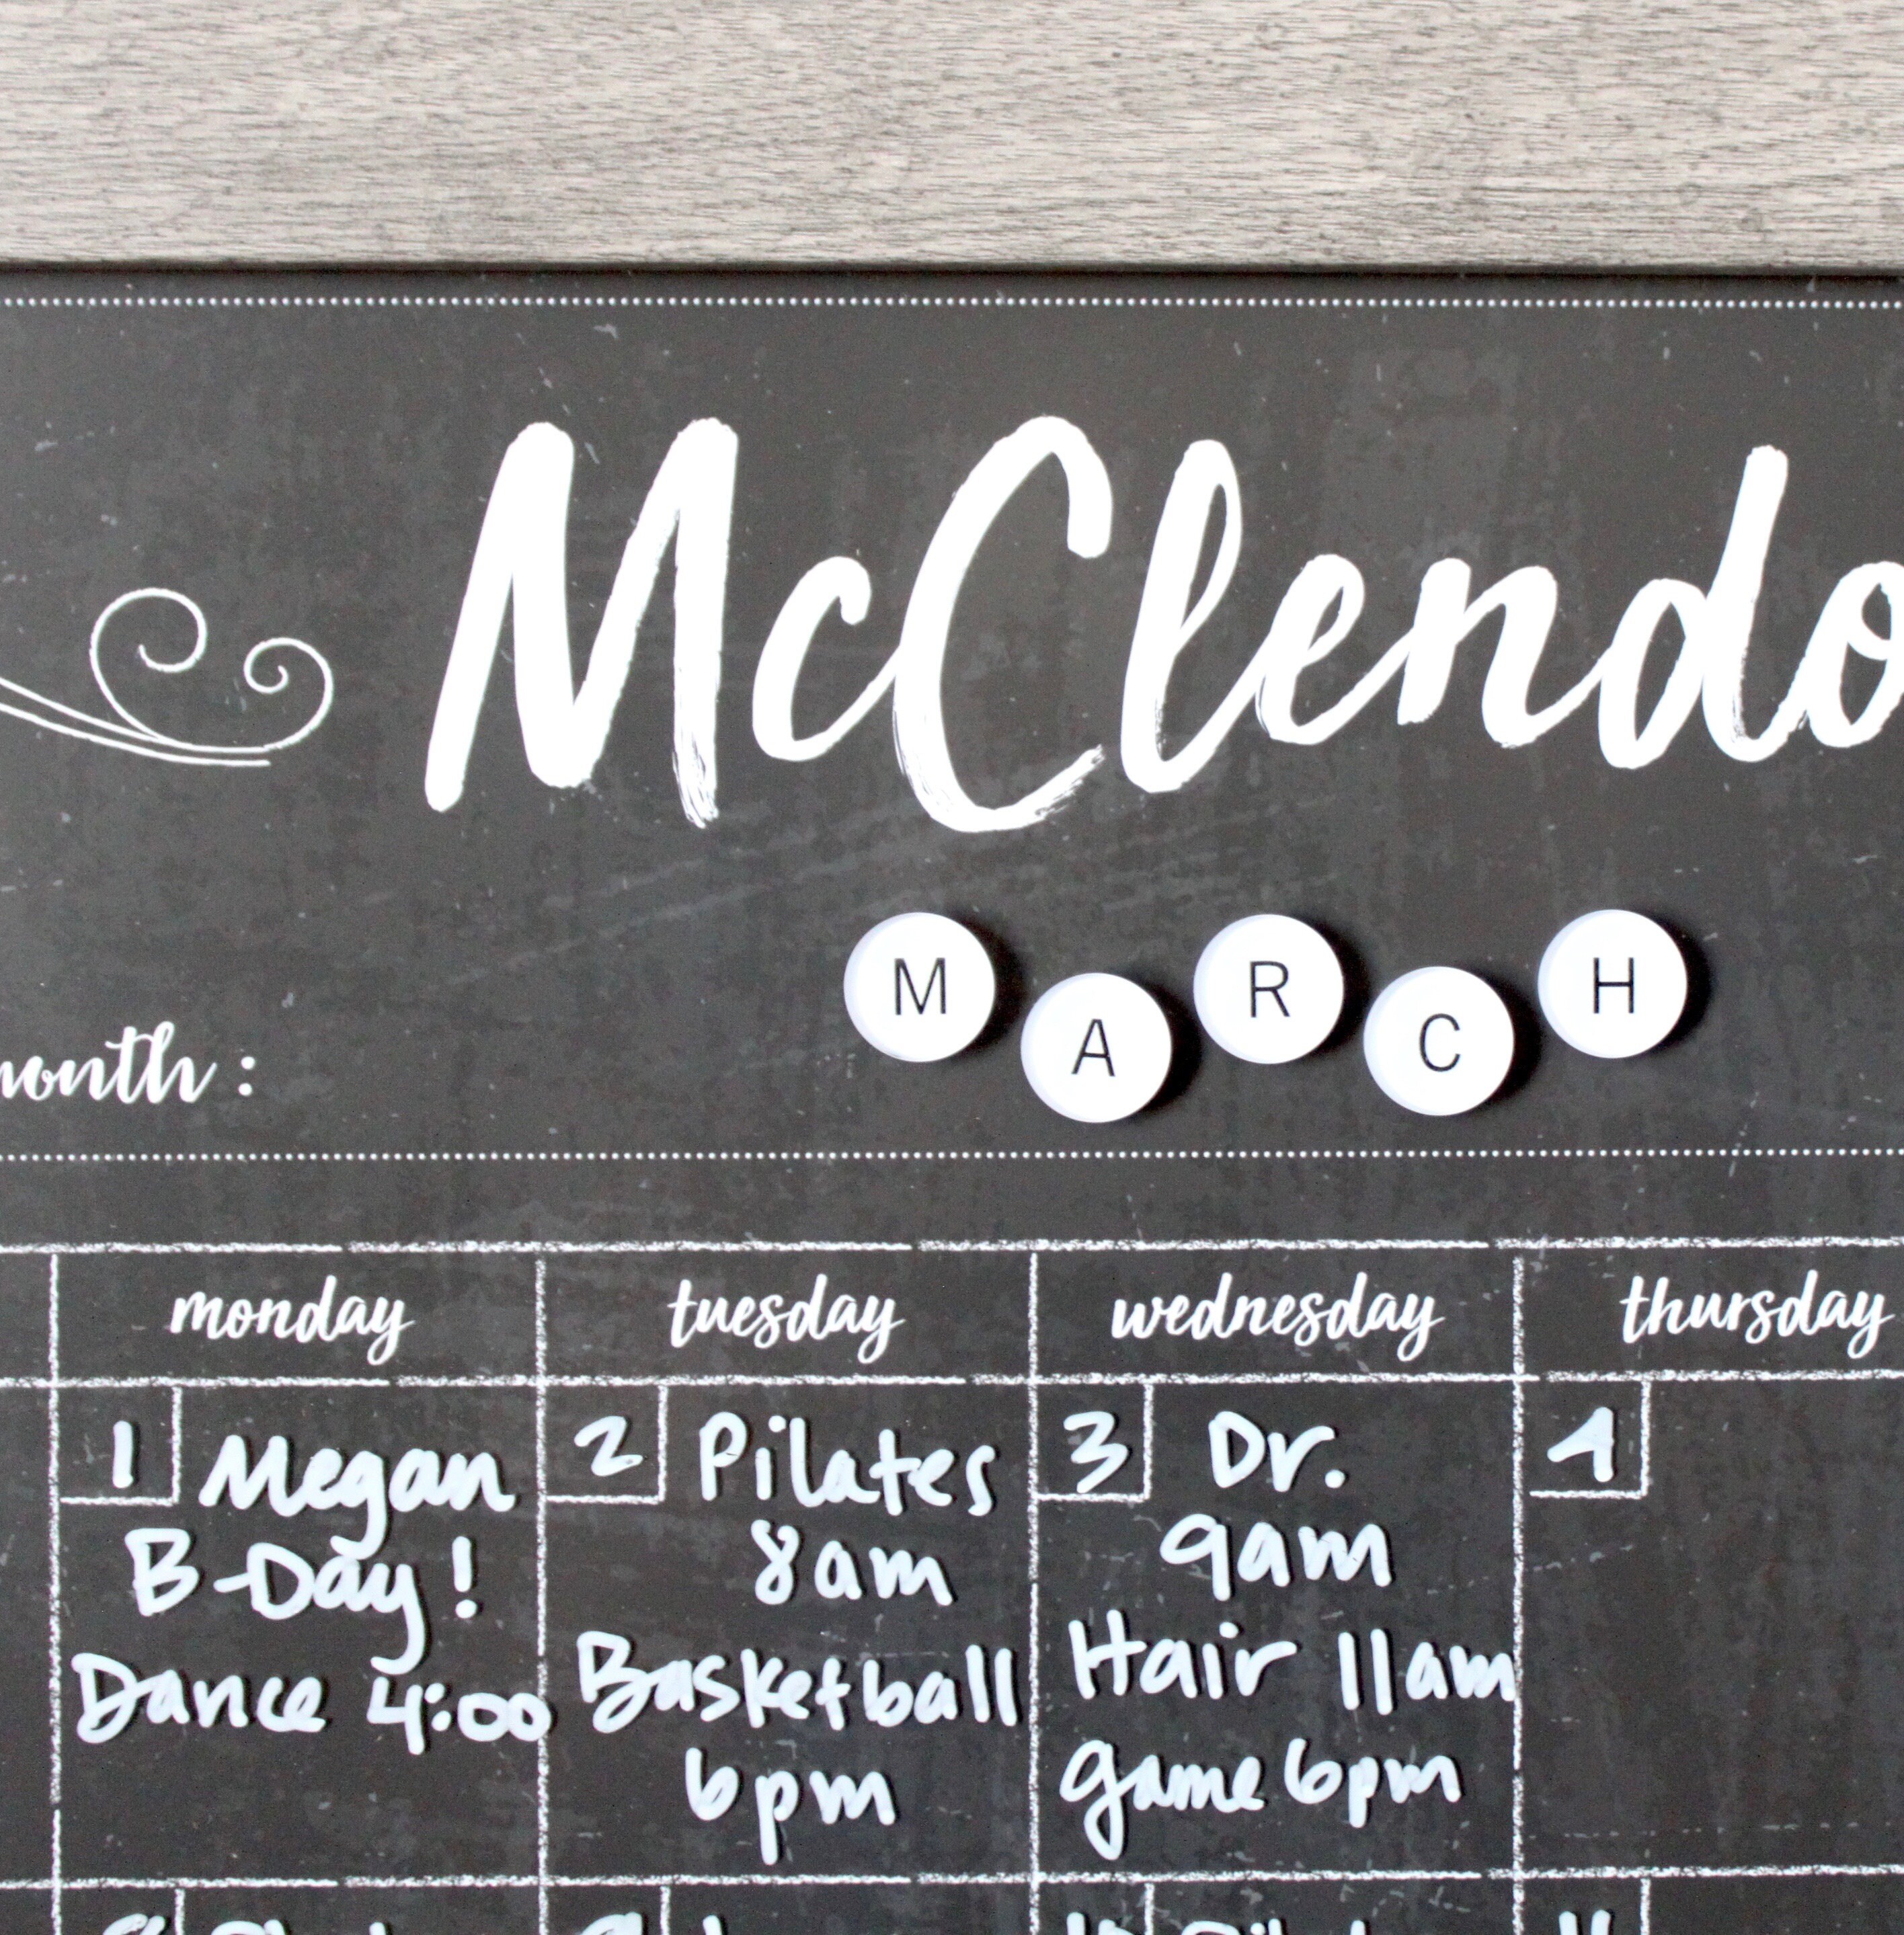 McClendo
MARCH
month :
monday tuesday wednesday thursday
1 Megan
B-Day!
Dance 4:00
2 Pilates
8am
Basketball
6pm
3 Dr.
9am
Hair 11am
game 6pm
4